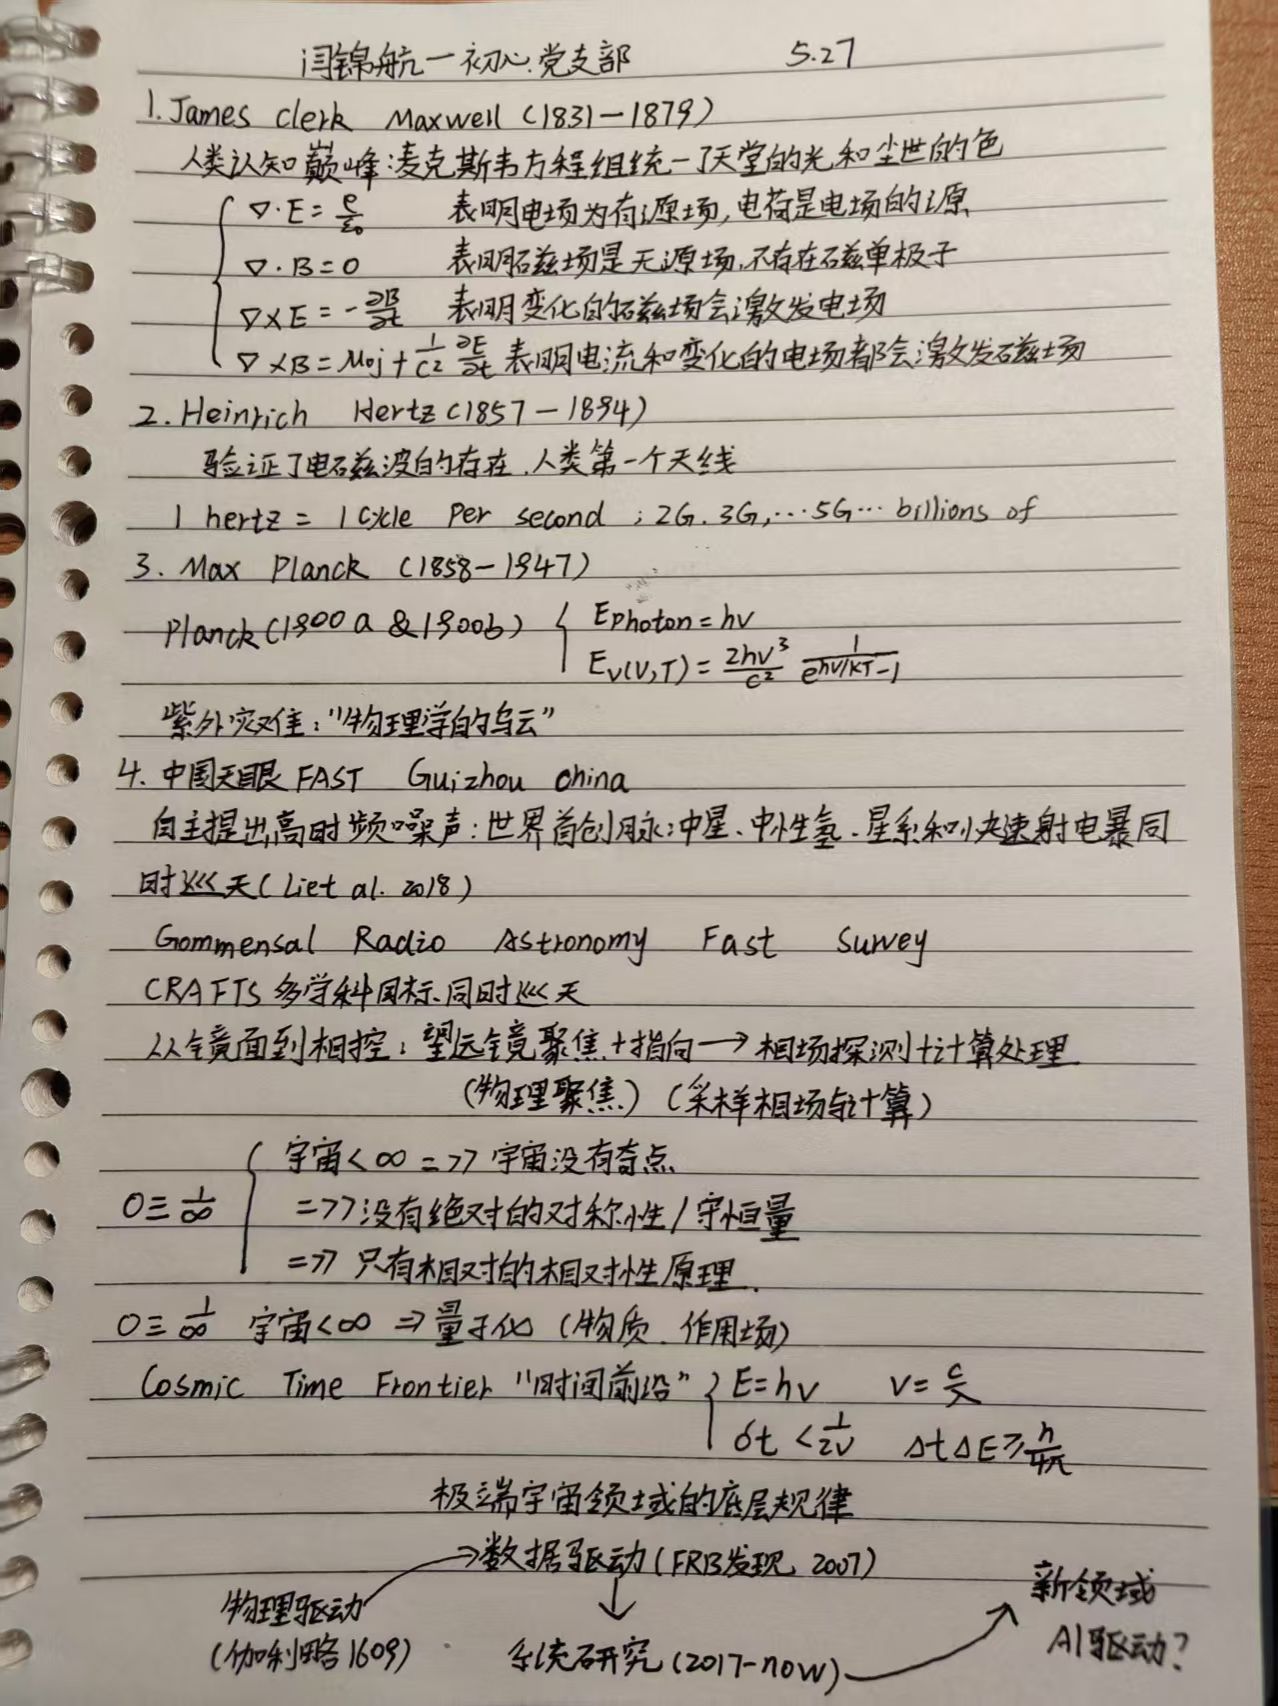 闫锦航一初心党支部 5.27
1. James Clerk Maxwell (1831-1879)
人类认知巅峰:麦克斯韦方程组统一了天堂的光和尘世的色
∇·E=ρ/ε0 表明电场为有源场,电荷是电场的源
∇·B=0 表明磁场是无源场,不存在磁单极子
∇×E=-∂B/∂t 表明变化的磁场会激发电场
∇×B=μ0j+1/c² ∂E/∂t 表明电流和变化的电场都会激发磁场
2. Heinrich Hertz (1857-1894)
验证了电磁波的存在,人类第一个天线
1 hertz = 1 cycle per second ; 2G. 3G,...5G... billions of
3. Max Planck (1858-1947)
Planck (1900a & 1900b) { Ephoton=hν
Eν(ν,T)=2hν³/c² 1/e^hν/kT-1
紫外灾难:"物理学的乌云"
4. 中国天眼 FAST Guizhou china
自主提出高时频噪声:世界首创脉冲星、中性氢、星系和快速射电暴同
时巡天(Li et al. 2018)
Commensal Radio Astronomy Fast Survey
CRAFTS 多学科目标、同时巡天
从镜面到相控:望远镜聚焦+指向→相场探测+计算处理
(物理聚焦)(采样相场与计算)
宇宙<∞ =>> 宇宙没有奇点
0≡1/∞ =>> 没有绝对的对称性/守恒量
=>> 只有相对的相对性原理.
0≡1/∞ 宇宙<∞ ⇒量子化 (物质、作用场)
Cosmic Time Frontier "时间前沿" { E=hν ν=c/λ
δt<1/2ν ΔtΔE≥h/4π
极端宇宙领域的底层规律
→数据驱动(FRB发现, 2007)
物理驱动 ↓ 新领域
(伽利略1609) 系统研究(2017-now) AI驱动?